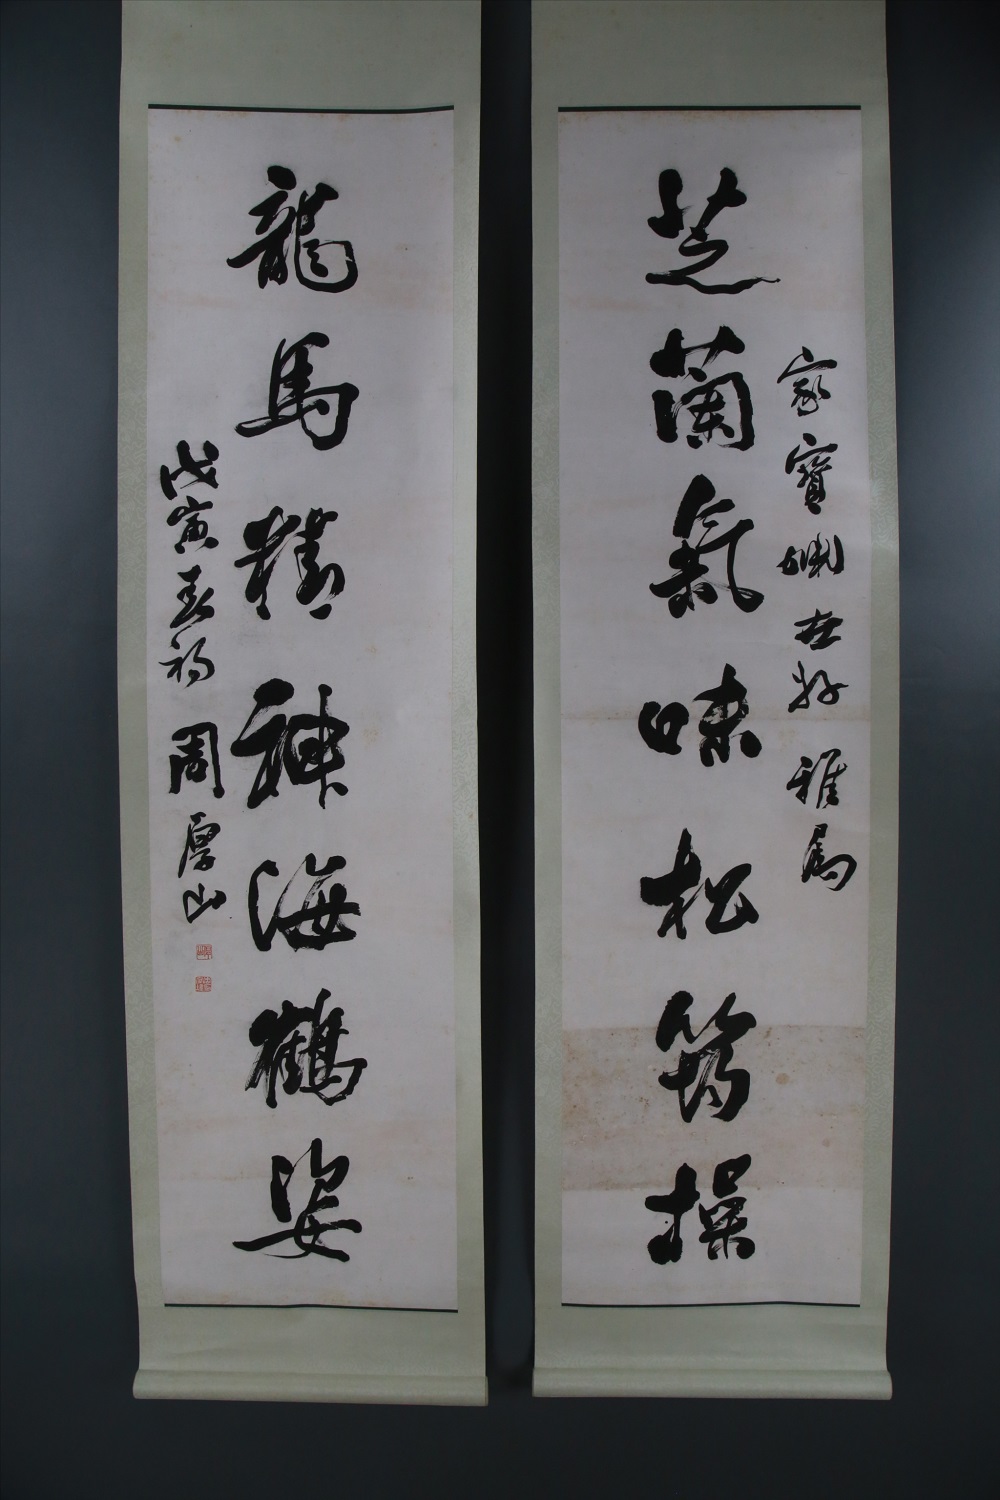 芝蘭氣味松筠操
家寶 雅屬
龍馬精神海鶴姿
戊寅春初 周厚山